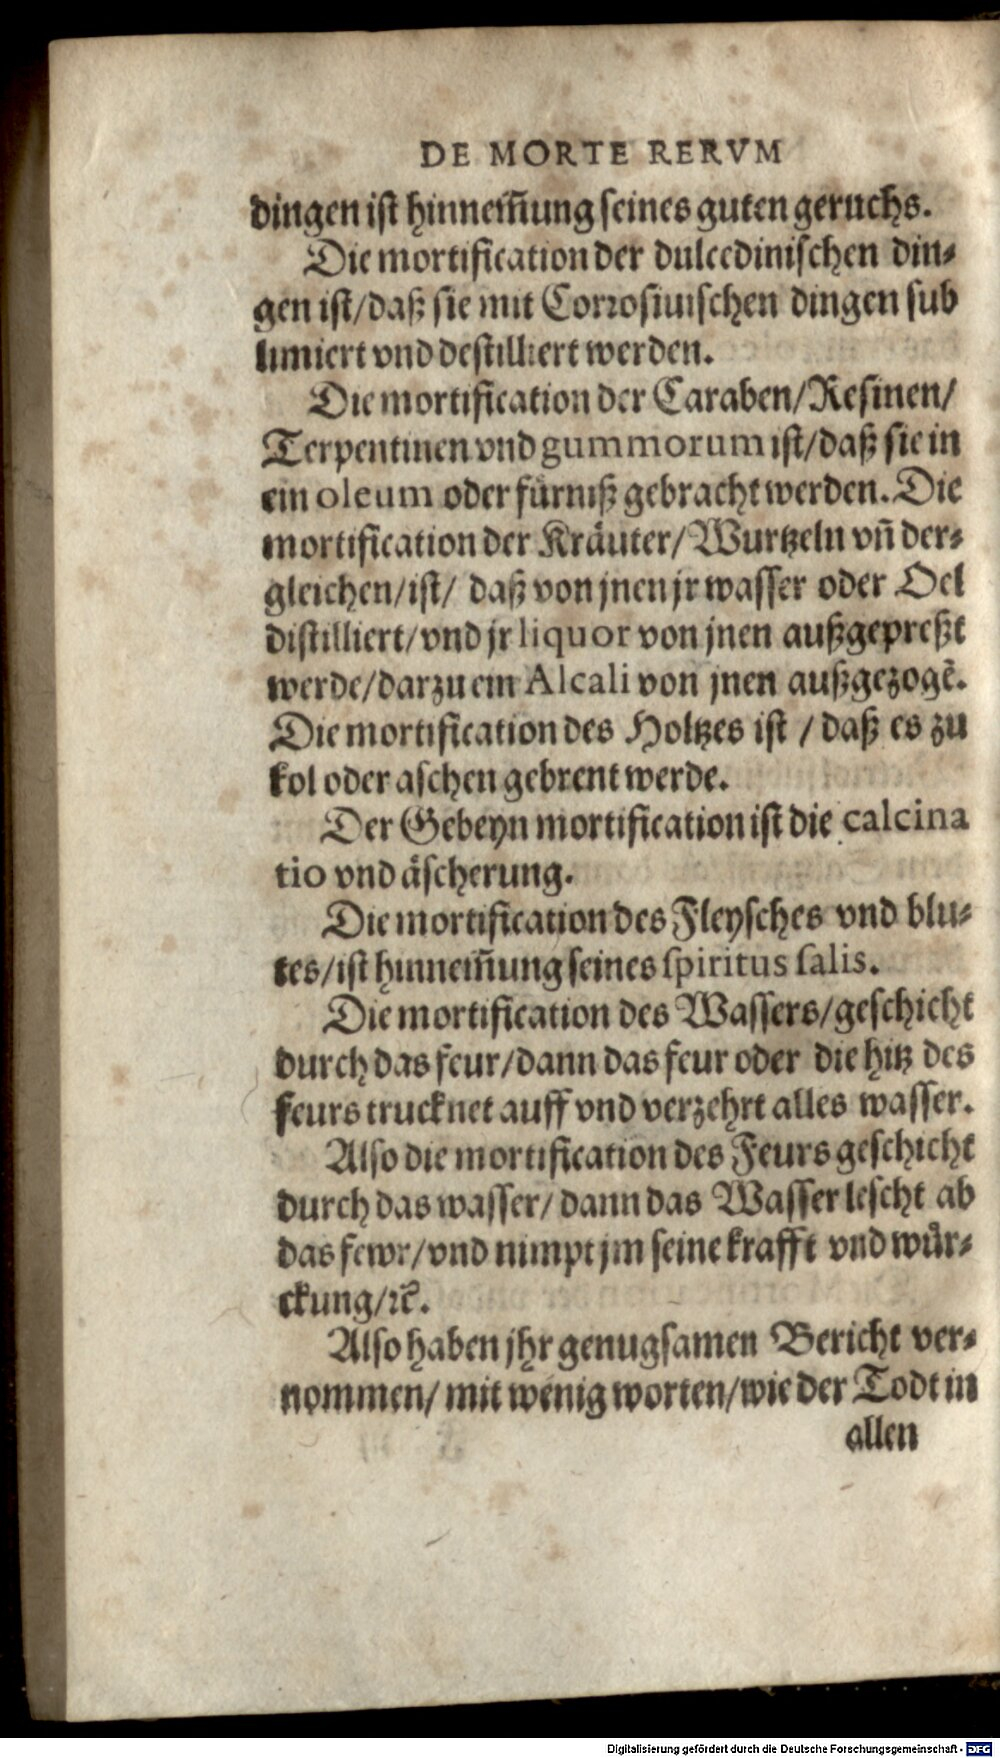 DE MORTE RERVM
dingen ist hinnem̃ung seines guten geruchs.
Die mortification der dulcedinischen din⸗
gen ist/daß sie mit Corrosiuischen dingen sub
limiert vnd destilliert werden.
Die mortification der Caraben/Resinen/
Terpentinen vnd gummorum ist/daß sie in
ein oleum oder fürniß gebracht werden. Die
mortification der Kräuter/Wurtzeln vñ der⸗
gleichen/ist/ daß von jnen jr wasser oder Oel
distilliert/vnd jr liquor von jnen außgepreßt
werde/darzu ein Alcali von jnen außgezogẽ.
Die mortification des Holtzes ist / daß es zu
kol oder aschen gebrent werde.
Der Gebeyn mortification ist die calcina
tio vnd äscherung.
Die mortification des Fleysches vnd blu⸗
tes/ist hinnem̃ung seines spiritus salis.
Die mortification des Wassers/geschicht
durch das feur/dann das feur oder die hitz des
feurs trucknet auff vnd verzehrt alles wasser.
Also die mortification des Feurs geschicht
durch das wasser/ dann das Wasser lescht ab
das fewr/vnd nimpt jm seine krafft vnd wür⸗
ckung/ꝛc̃.
Also haben jhr genugsamen Bericht ver⸗
nommen/ mit wenig worten/wie der Todt in
allen
Digitalisierung gefördert durch die Deutsche Forschungsgemeinschaft - DFG